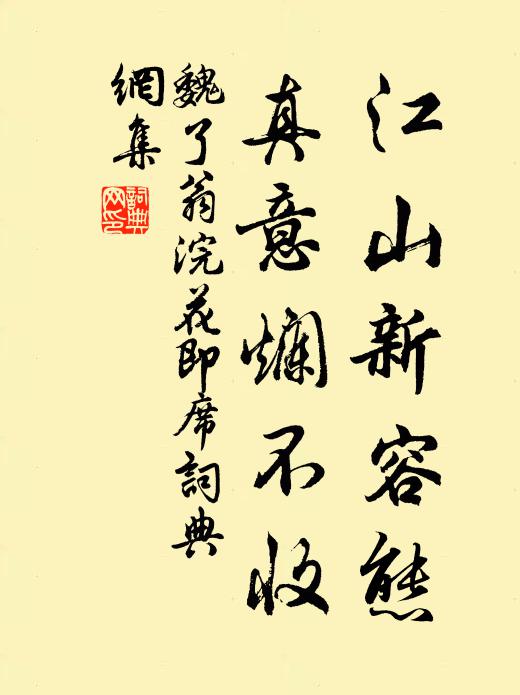 江山新容態
真意爛不收
魏了翁浣花即席詞典
網集
詞典
網印